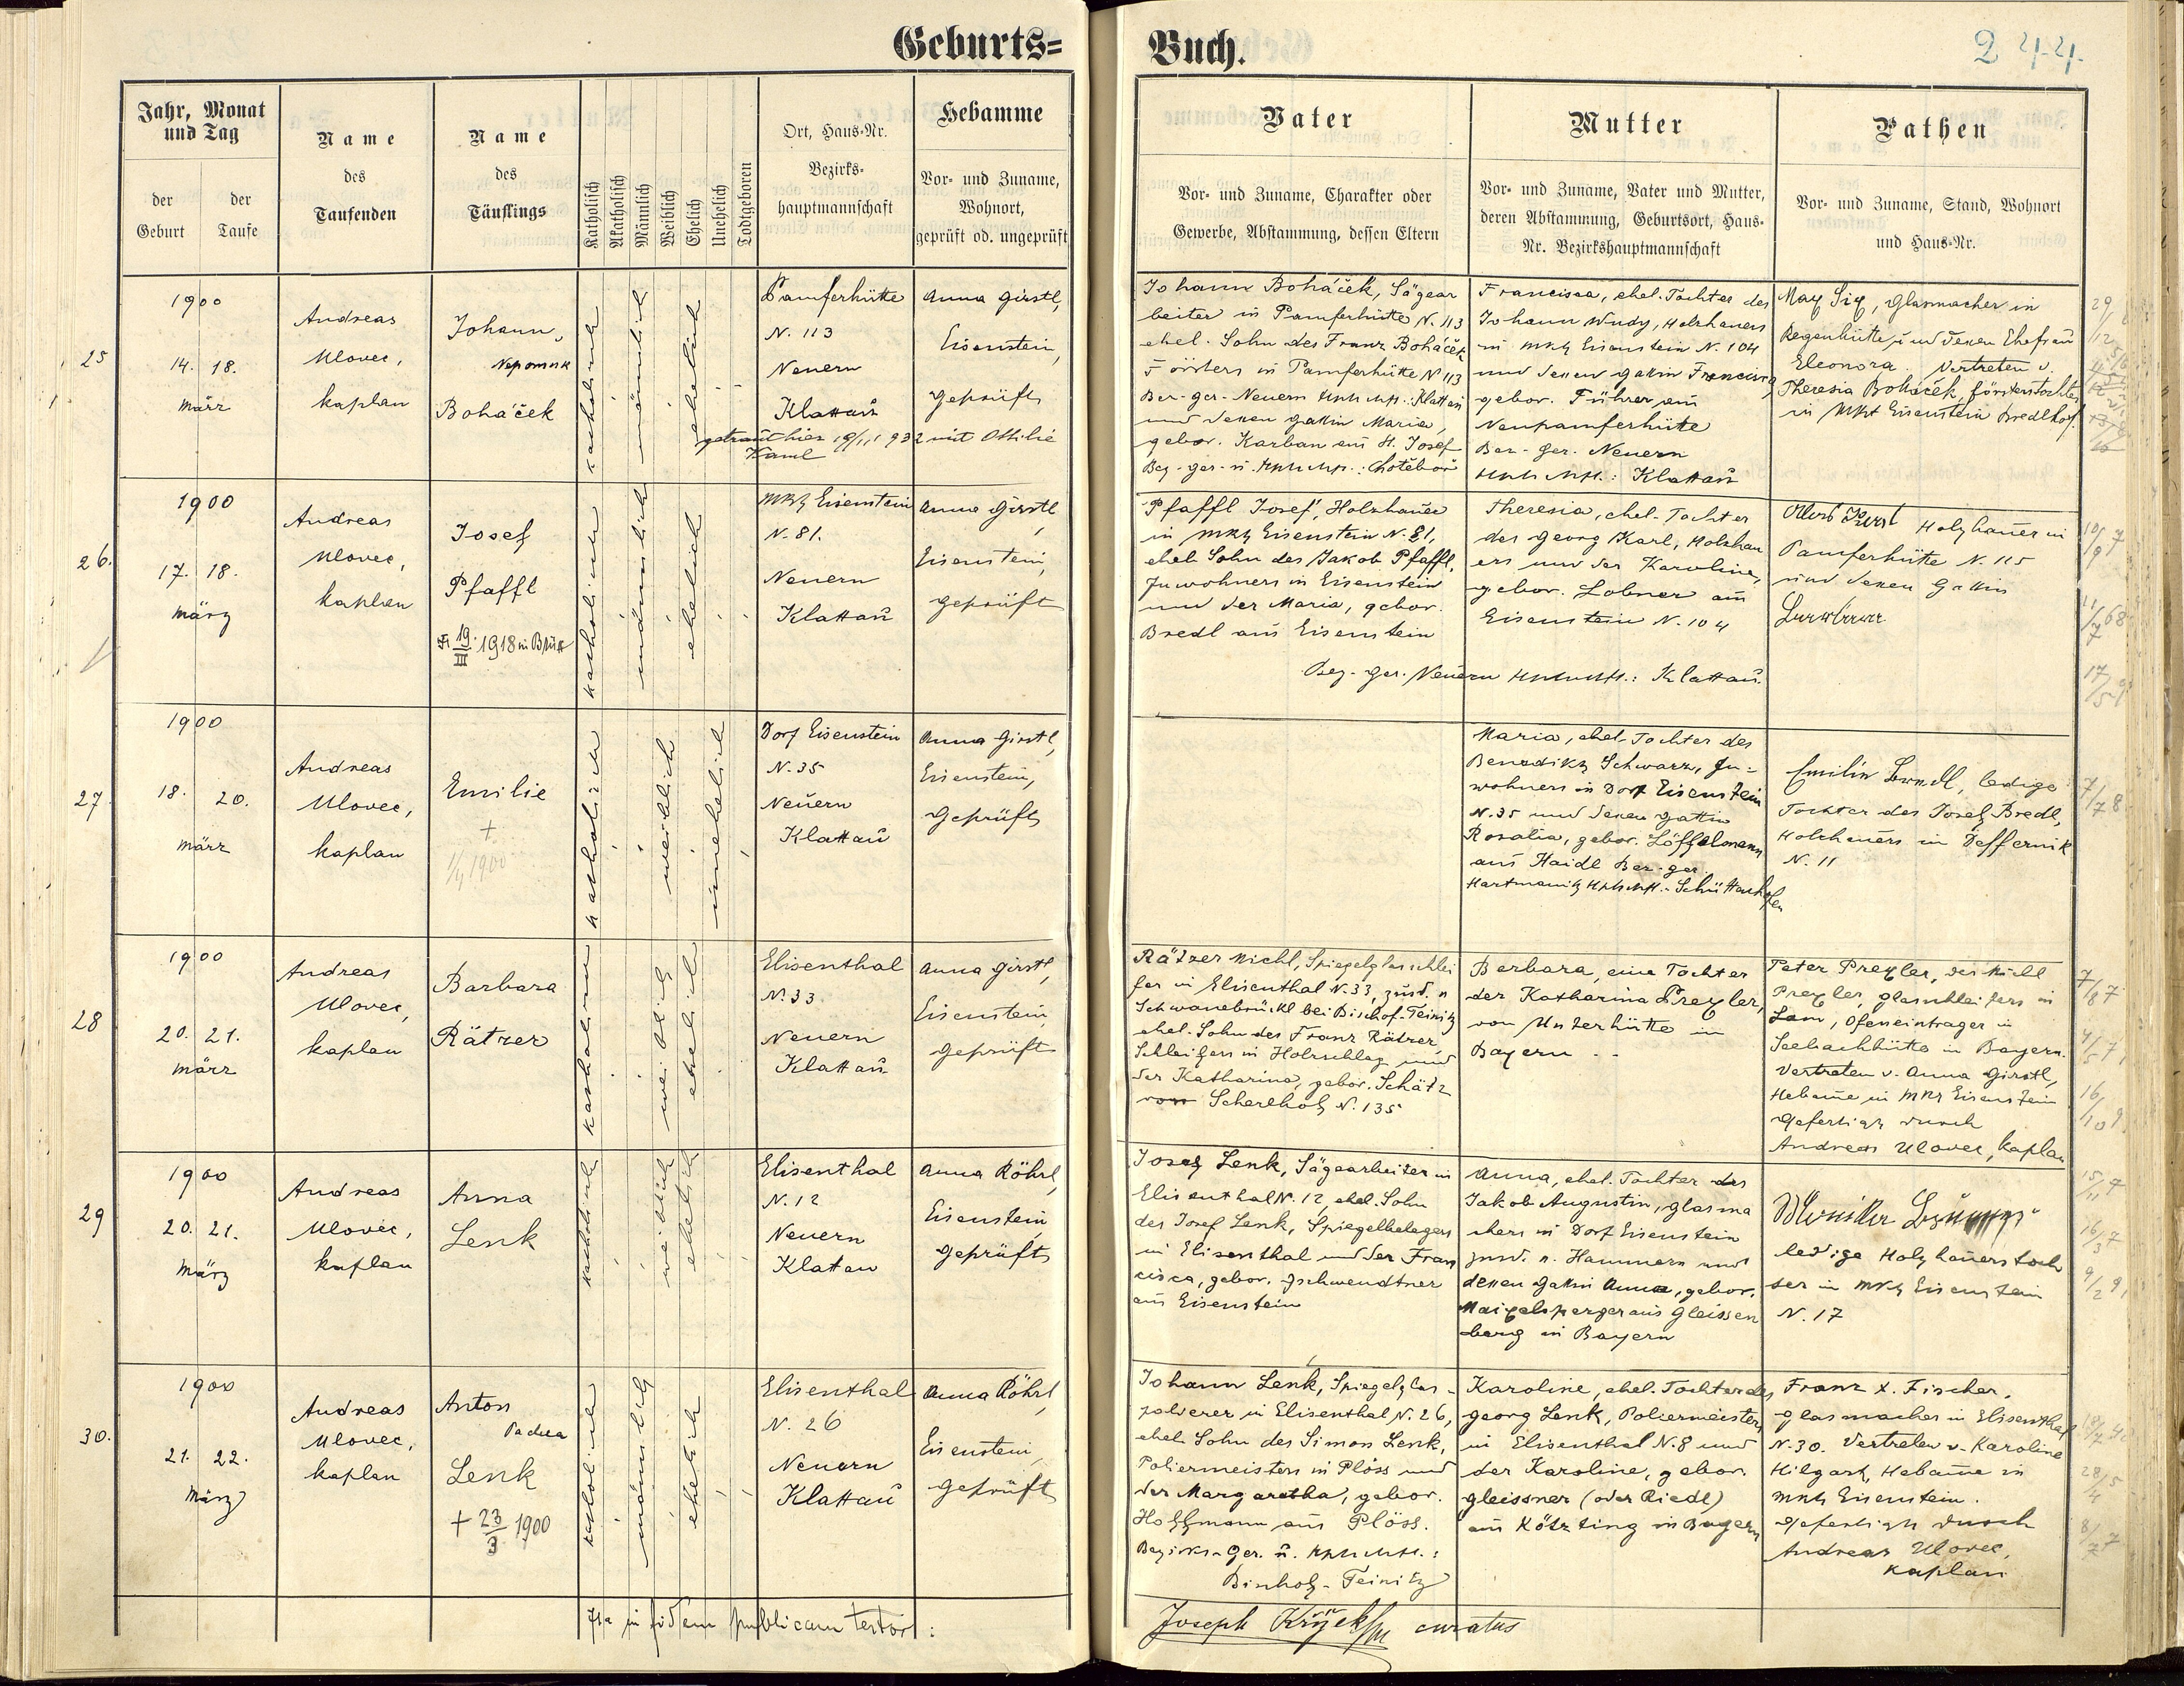 Geburts=
Buch.
244.
Jahr, Monat
und Tag
der
Geburt
der
Taufe
Name
des
Taufenden
Name
des
Täuflings
Katholisch
Akatholisch
Männlich
Weiblich
Ehelich
Unehelich
Todtgeboren
Ort, Haus-Nr.
Bezirks-
hauptmannschaft
Hebamme
Vor- und Zuname,
Wohnort,
geprüft od. ungeprüft
Vater
Vor- und Zuname, Charakter oder
Gewerbe, Abstammung, dessen Eltern
Mutter
Vor- und Zuname, Vater und Mutter,
deren Abstammung, Geburtsort, Haus-
Nr. Bezirkshauptmannschaft
Pathen
Vor- und Zuname, Stand, Wohnort
und Haus-Nr.
25
1900
14. 18.
März
Andreas
Ulovec,
kaplan
Johann,
Nepomuk
Boháček
katholisch
männlich
ehelich
Pamferhütte
N. 113
Neuern
Klattau
getraut hier 19/11 1932 mit Ottilie
Kaml
Anna Girstl,
Eisenstein,
geprüft
Johann Boháček, Sägear
beiter in Pamferhütte N. 113
ehel. Sohn des Franz Boháček
Försters in Pamferhütte N 113
Bez-ger-Neuern Klattau
und dessen Gattin Maria,
gebor. Karban aus St. Josef
Bez-ger-u. Chotěboř
Francisca, ehel. Tochter des
Johann Wudy, Holzhauers
in Mkt Eisenstein N. 104
und dessen Gattin Francisca,
gebor. Führer aus
Neupamferhütte
Bez-ger. Neuern
Klattau
Max Six, Glasmacher in
Regenhütte, und dessen Ehefrau
Eleonora. Vertreten v.
Theresia Boháček, Försterstochter
in Mkt Eisenstein Bredlhof.
26.
1900
17. 18.
März
Andreas
Ulovec,
kaplan
Josef
Pfaffl
19./III 1918 in
katholisch
männlich
ehelich
Mkt Eisenstein
N. 81.
Neuern
Klattau
Anna Girstl
Eisenstein,
geprüft
Pfaffl Josef, Holzhauer
in Mkt Eisenstein N. 81,
ehel. Sohn des Jakob Pfaffl,
Inwohners in Eisenstein
und der Maria, gebor.
Bredl aus Eisenstein
Bez-ger. Neuern Klattau.
Theresia, ehel. Tochter
des Georg Karl, Holzhau
ers und der Karoline,
gebor. Lobner aus
Eisenstein N. 104
Holzhauer in
Pamferhütte N. 115
und dessen Gattin
27
1900
18. 20.
März
Andreas
Ulovec,
kaplan
Emilie
+
1/4 1900
katholisch
weiblich
unehelich
Dorf Eisenstein
N. 35
Neuern
Klattau
Anna Girstl,
Eisenstein,
geprüft
Maria, ehel. Tochter des
Benedikt Schwarz, In-
wohners in Dorf Eisenstein
N. 35 und dessen Gattin
Rosalia, gebor. Löffelmann
aus Haidl Bez-ger.
Hartmanitz Schüttenhofen
Emilie Bredl, ledige
Tochter des Josef Bredl,
Holzhauers in Deffernik
N. 11
28
1900
20. 21.
März
Andreas
Ulovec,
kaplan
Barbara
Rätzer
katholisch
weiblich
ehelich
Elisenthal
N. 33
Neuern
Klattau
Anna Girstl,
Eisenstein,
geprüft
Rätzer Michl, Spiegelglasschlei
fer in Elisenthal N. 33, zust. n
Schwanebrückl bei Bischof-Teinitz
ehel. Sohn des Franz Rätzer
Schleifers in Holzschlag und
der Katharina, gebor. Schätz
von Scherlhof N. 135
Barbara, eine Tochter
der Katharina Prexler,
von Unterhütte in
Bayern
Peter Prexler, des Michl
Prexler, Glasschleifers in
Lam, Ofeneintrager in
Seebachhütte in Bayern.
Vertreten v. Anna Girstl,
Hebamme in Mkt Eisenstein
Gefertigt durch
Andreas Ulovec, kaplan
29
1900
20. 21.
März
Andreas
Ulovec,
kaplan
Anna
Lenk
katholisch
weiblich
ehelich
Elisenthal
N. 12
Neuern
Klattau
Anna Röhrl,
Eisenstein,
geprüft
Josef Lenk, Sägearbeiter in
Elisenthal N. 12, ehel. Sohn
des Josef Lenk, Spiegelbelegers
in Elisenthal und der Fran
cisca, gebor. Gschwendtner
aus Eisenstein
Anna, ehel. Tochter des
Jakob Augustin, Glasma
chers in Dorf Eisenstein
zust. n. Hammern und
dessen Gattin Anna, gebor.
Maigelsperger aus Gleissen
berg in Bayern
ledige Holzhauerstoch
ter in Mkt Eisenstein
N. 17
30.
1900
21. 22.
März
Andreas
Ulovec,
kaplan
Anton
Lenk
+ 23/3 1900
katholisch
männlich
ehelich
Elisenthal
N. 26
Neuern
Klattau
Anna Röhrl,
Eisenstein,
geprüft
Johann Lenk, Spiegelglas-
polierer in Elisenthal N. 26,
ehel. Sohn des Simon Lenk,
Poliermeisters in Plöss und
der Margaretha, gebor.
Hoffmann aus Plöss.
Bezirks-Ger. u.
Bischof-Teinitz
Karoline, ehel. Tochter des
Georg Lenk, Poliermeisters
in Elisenthal N. 8 und
der Karoline, gebor.
Gleissner (oder Riedl)
aus Kötzting in Bayern
Franz X. Fischer,
Glasmacher in Elisenthal
N. 30. Vertreten v. Karoline
Hilgart, Hebamme in
Mkt Eisenstein.
Gefertigt durch
Andreas Ulovec,
kaplan
Ita in fidem publicam testor:
Joseph curatus